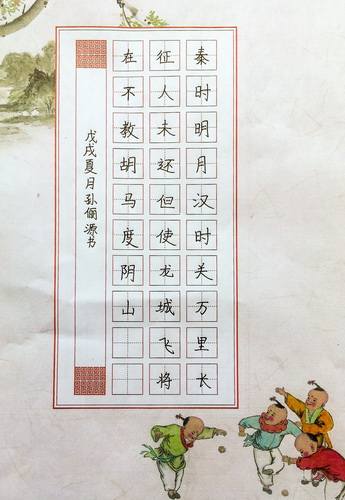 秦时明月汉时关万里长
征人未还但使龙城飞将
在不教胡马度阴山
戊戌夏月孙俪源书